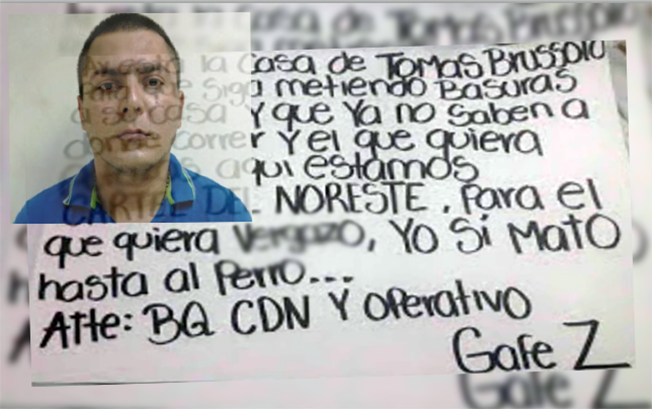 la Casa de TOMAS BRUSSOlO
siga metiendo BaSuras
su casa Y que Ya no Saben a
donde correr Y el que quiera
aquí eStamos
CARTEL DEL NORESTE, Para el
que quiera Vergazo, Yo Sí Mato
hasta al Perro...
Atte: BQ CDN Y Operativo
Gafe Z